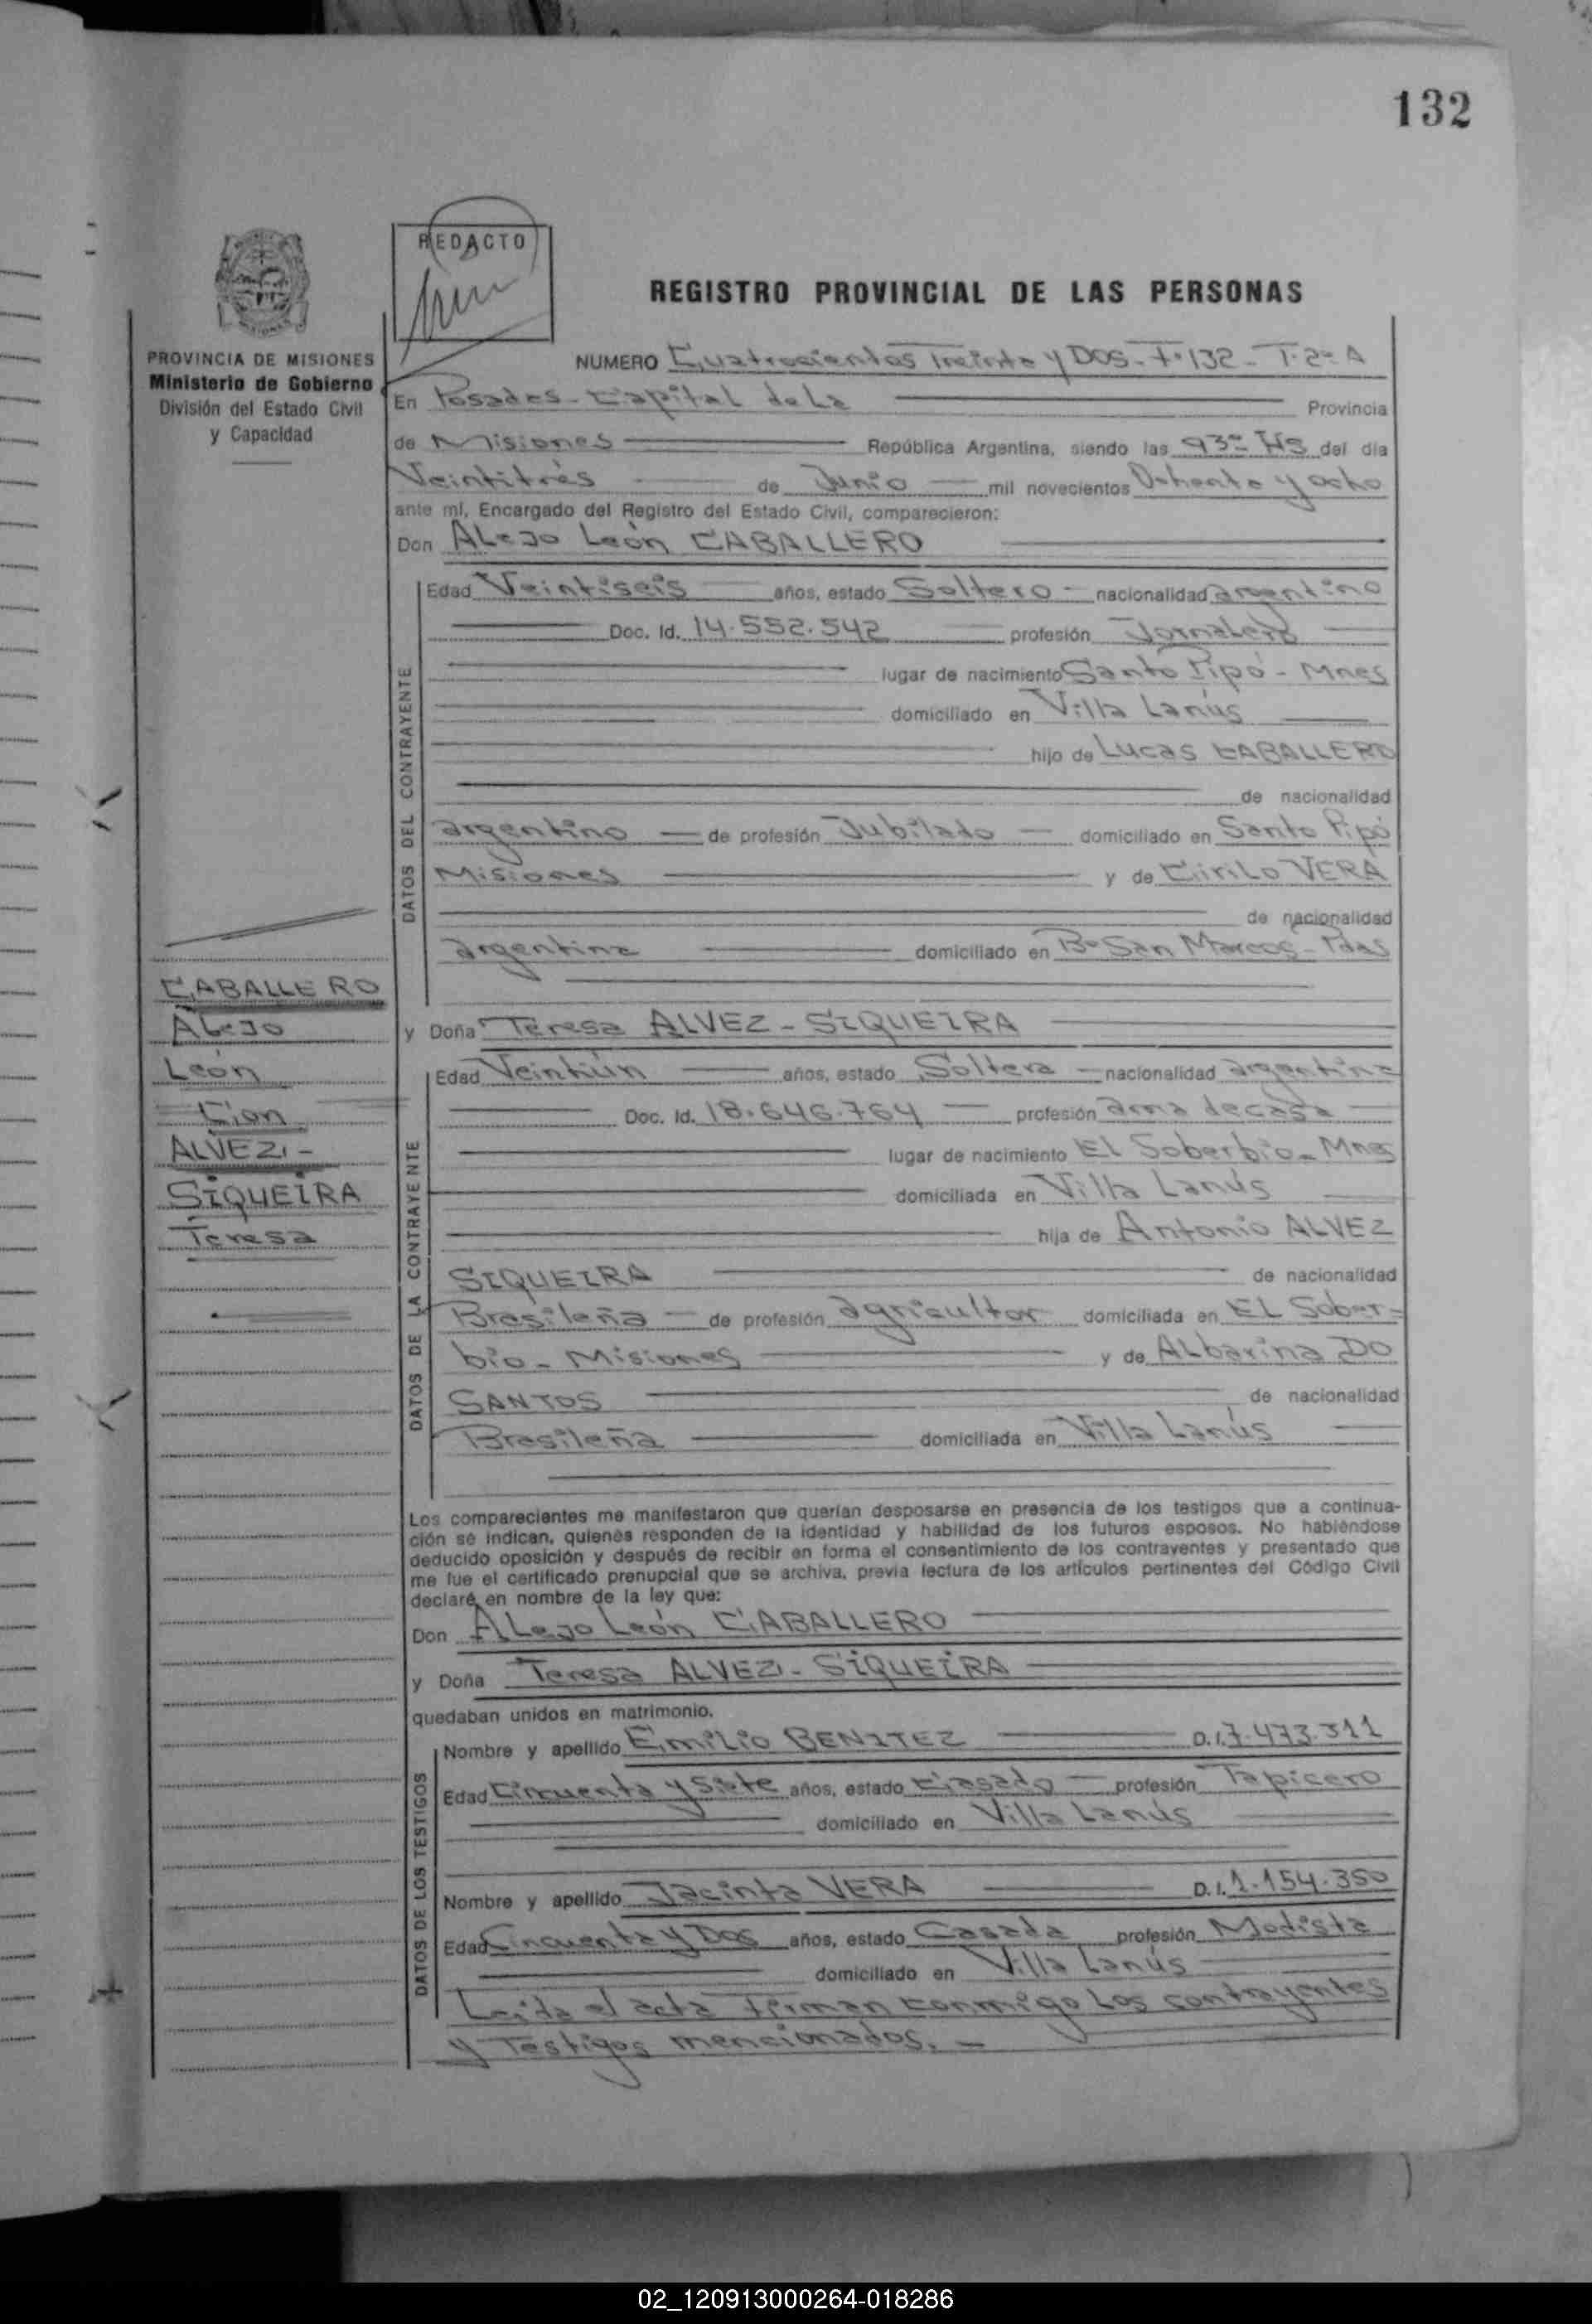 132
REDACTO
REGISTRO PROVINCIAL DE LAS PERSONAS
PROVINCIA DE MISIONES
Ministerio de Gobierno
División del Estado Civil
y Capacidad
NUMERO Cuatrocientos Treinta y DOS - Fº 132 - T. 2º A
En Posadas - Capital de La Provincia
de Misiones República Argentina, siendo las 9³⁰ HS del día
Veintitrés de Junio mil novecientos Ochenta y ocho
ante mí, Encargado del Registro del Estado Civil, comparecieron:
Don ALejo León CABALLERO
DATOS DEL CONTRAYENTE
Edad Veintiseis años, estado Soltero nacionalidad argentino
Doc. Id. 14.552.542 profesión Jornalero
lugar de nacimiento Santo Pipó - Mnes
domiciliado en Villa Lanús
hijo de Lucas CABALLERO
de nacionalidad
argentino de profesión Jubilado domiciliado en Santo Pipó
Misiones y de Cirila VERA
de nacionalidad
argentina domiciliado en Bº San Marcos - Pdas
CABALLERO
ALejo
León
Con
ALVEZ -
SIQUEIRA
Teresa
y Doña Teresa ALVEZ - SIQUEIRA
DATOS DE LA CONTRAYENTE
Edad Veintiún años, estado Soltera nacionalidad argentina
Doc. Id. 18.646.764 profesión ama de casa
lugar de nacimiento EL Soberbio - Mnes
domiciliada en Villa Lanús
hija de Antonio ALVEZ
SIQUEIRA de nacionalidad
Brasileña de profesión agricultor domiciliada en EL Sober-
bio - Misiones y de ALbarina DO
SANTOS de nacionalidad
Brasileña domiciliada en Villa Lanús
Los comparecientes me manifestaron que querían desposarse en presencia de los testigos que a continua-
ción se indican, quienes responden de la identidad y habilidad de los futuros esposos. No habiéndose
deducido oposición y después de recibir en forma el consentimiento de los contrayentes y presentado que
me fue el certificado prenupcial que se archiva, previa lectura de los artículos pertinentes del Código Civil
declaré en nombre de la ley que:
Don ALejo León CABALLERO
y Doña Teresa ALVEZ - SIQUEIRA
quedaban unidos en matrimonio.
DATOS DE LOS TESTIGOS
Nombre y apellido Emilio BENITEZ D.I. 7.473.311
Edad Cincuenta y Siete años, estado Casado profesión Tapicero
domiciliado en Villa Lanús
Nombre y apellido Jacinta VERA D.I. 1.154.350
Edad Cincuenta y Dos años, estado Casada profesión Modista
domiciliado en Villa Lanús
Leida el acta firman conmigo Los contrayentes
y Testigos mencionados. -
02_120913000264-018286